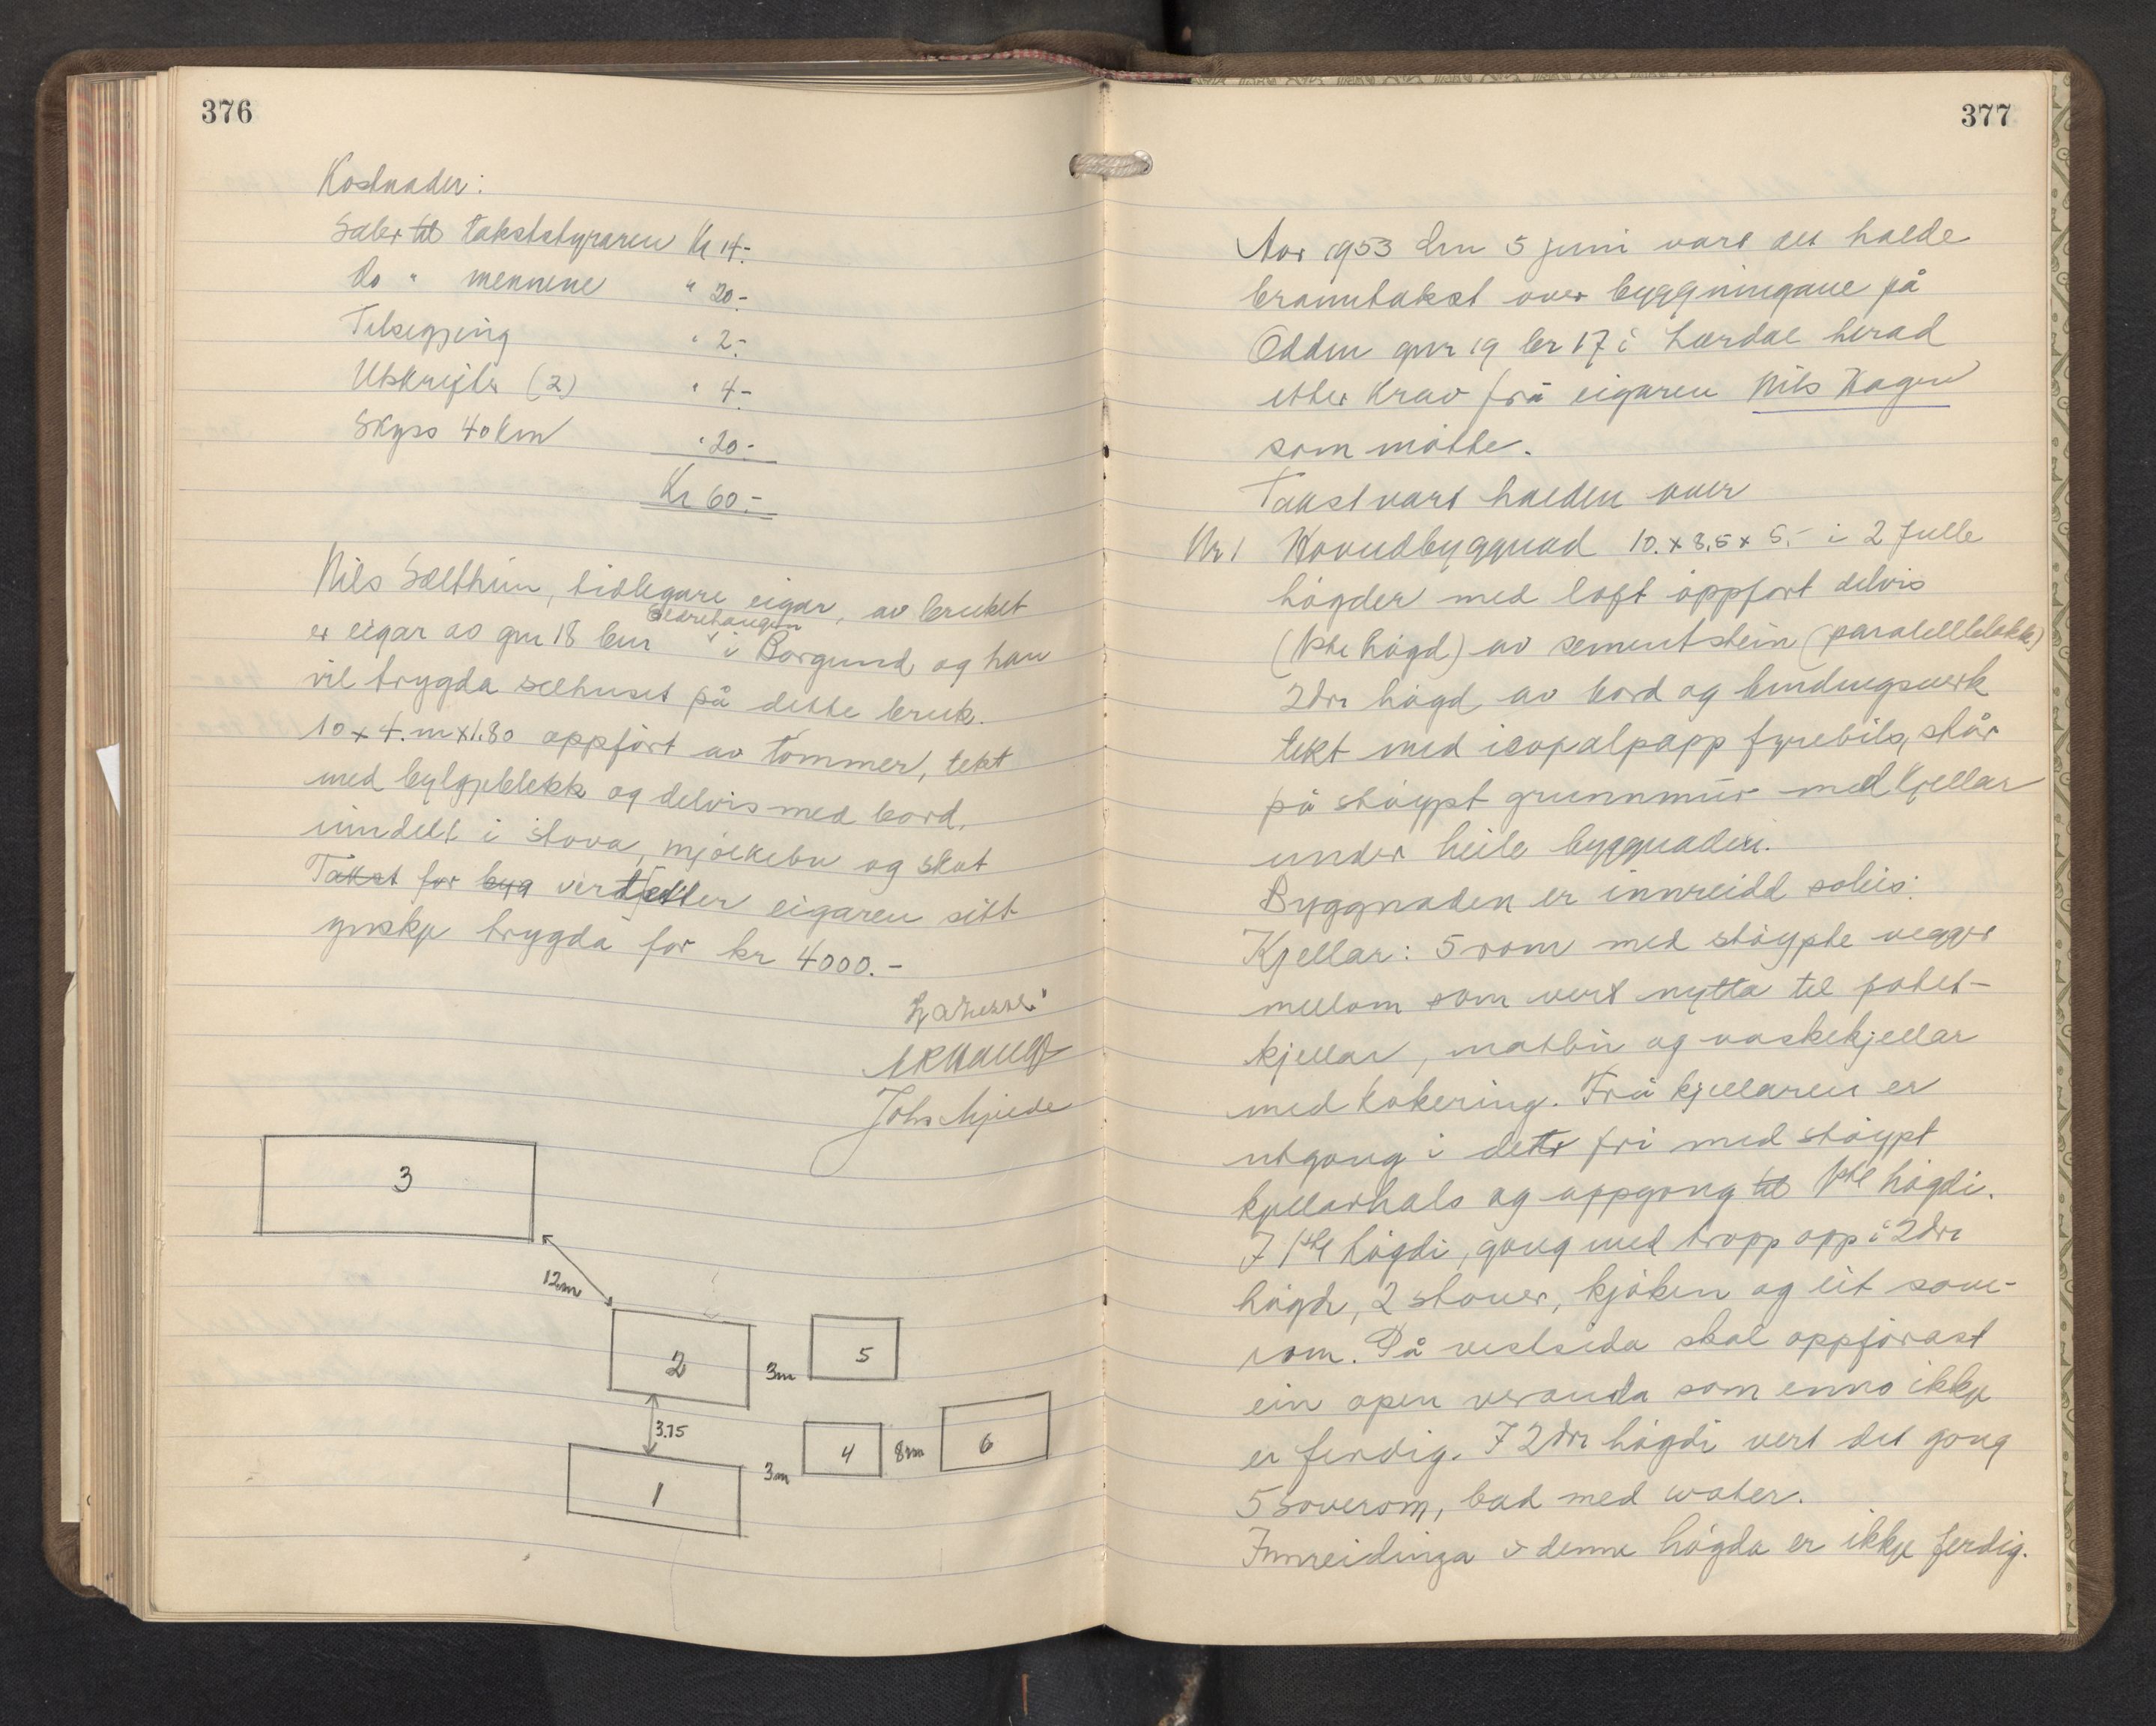 376
Kostnader:
Saler til takststyraren Kr 14.-
Do " mennene " 20.-
Tilsegjing " 2.-
Utskrifter (2) " 4.-
Skyss 40 km " 20.-
Kr 60.-
Nils Sælthun, tidlegare eigar, av bruket
er eigar av gnr 18 bnr i Borgund og han
vil trygda selhuset på dette bruk.
10 x 4. m x 1.80 oppført av tømmer, tekt
med bylgjeblekk og delvis med bord,
inndelt i stova, mjølkebu og skot
Takst for byg vert etter eigaren sitt
ynskje trygda for kr 4000.-
Johs Mjelde
3
12m
2
3m
5
3.75
4
8m
6
1
3m
377
Aar 1953 den 5 juni vart det halde
branntakst over byggningane på
Odden gnr 19 br 17 i Lærdal herad
etter krav frå eigaren Nils Hagen
som møtte.
Takst vart halden over
Nr 1 Hovudbyggnad 10. x 8,5 x 6.- i 2 fulle
høgder med loft oppført delvis
(1ste høgd) av sementstein (paralellblokk)
2dre høgd av bord og bindingsverk
tekt med icopalpapp fyrebils, står
på støypt grunnmur med kjellar
under heile byggnaden.
Byggnaden er innreidd soleis:
Kjellar: 5 rom med støypte vegger
mellom som vert nytta til potet-
kjellar, matbu og vaskekjellar
med kokering. Frå kjellaren er
utgong i dette fri med støypt
kjellarhals og uppgong til 1ste høgdi.
I 1ste høgdi, gong med tropp opp i 2dre
høgdi, 2 stover, kjøken og eit sove-
rom. På vestsida skal oppførast
ein open veranda som enno ikkje
er ferdig. I 2dre høgdi vert det gong
5 soverom, bad med water.
Innreidinga i denne høgda er ikkje ferdig.